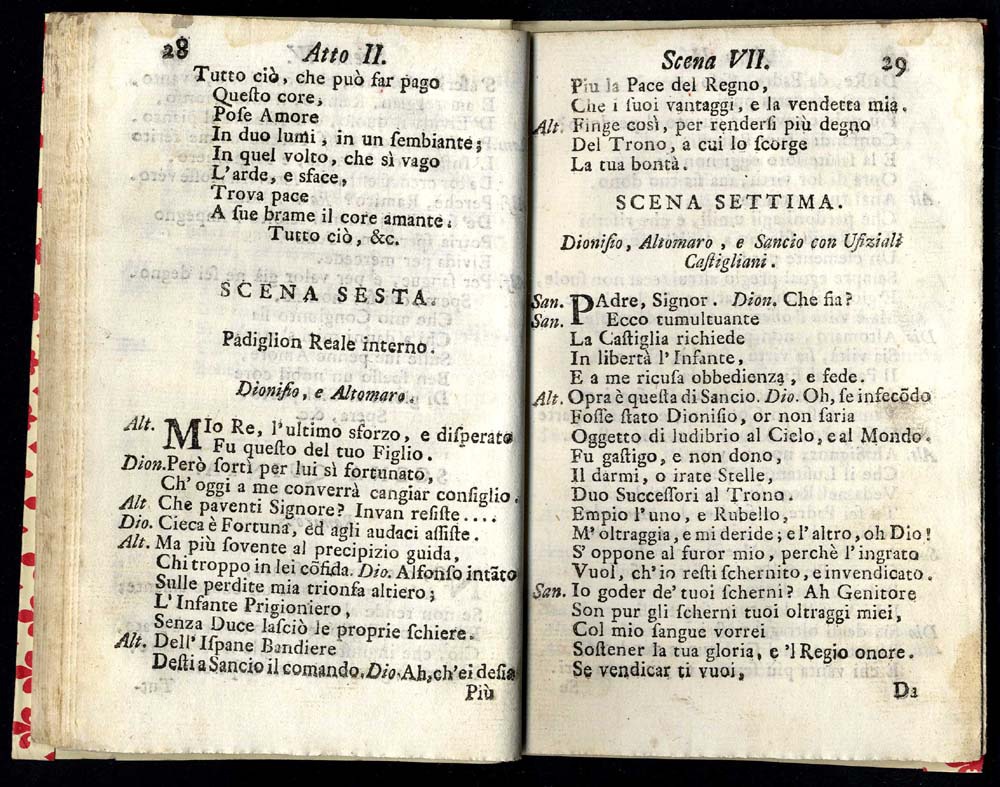 28 Atto II.
Tutto ciò, che può far pago
Queſto core,
Poſe Amore
In duo lumi, in un ſembiante;
In quel volto, che sì vago
L'arde, e sface,
Trova pace
A ſue brame il core amante.
Tutto ciò, &c.
SCENA SESTA.
Padiglion Reale interno.
Dioniſio, e Altomaro.
Alt. MIo Re, l'ultimo sforzo, e diſperato
Fu queſto del tuo Figlio.
Dion. Però ſortì per lui sì fortunato,
Ch' oggi a me converrà cangiar conſiglio.
Alt Che paventi Signore? Invan reſiſte....
Dio. Cieca è Fortuna, ed agli audaci aſſiſte.
Alt. Ma più ſovente al precipizio guida,
Chi troppo in lei cõfida. Dio. Alfonſo intãto
Sulle perdite mia trionfa altiero;
L' Infante Prigioniero,
Senza Duce laſciò le proprie ſchiere.
Alt. Dell' Iſpane Bandiere
Deſti a Sancio il comando. Dio. Ah, ch'ei deſia
Più
Scena VII. 29
Piu la Pace del Regno,
Che i ſuoi vantaggi, e la vendetta mia.
Alt. Finge così, per renderſi più degno
Del Trono, a cui lo ſcorge
La tua bontà.
SCENA SETTIMA.
Dioniſio, Altomaro, e Sancio con Ufiziali
Caſtigliani.
San. PAdre, Signor. Dion. Che fia?
San. Ecco tumultuante
La Caſtiglia richiede
In libertà l' Infante,
E a me ricuſa obbedienza, e fede.
Alt. Opra è queſta di Sancio. Dio. Oh, ſe infecõdo
Foſſe ſtato Dioniſio, or non ſaria
Oggetto di ludibrio al Cielo, e al Mondo.
Fu gaſtigo, e non dono,
Il darmi, o irate Stelle,
Duo Succeſſori al Trono.
Empio l'uno, e Rubello,
M' oltraggia, e mi deride; e l'altro, oh Dio!
S' oppone al furor mio, perchè l'ingrato
Vuol, ch'io reſti ſchernito, e invendicato.
San. Io goder de' tuoi ſcherni? Ah Genitore
Son pur gli ſcherni tuoi oltraggi miei,
Col mio ſangue vorrei
Soſtener la tua gloria, e 'l Regio onore.
Se vendicar ti vuoi,
Da